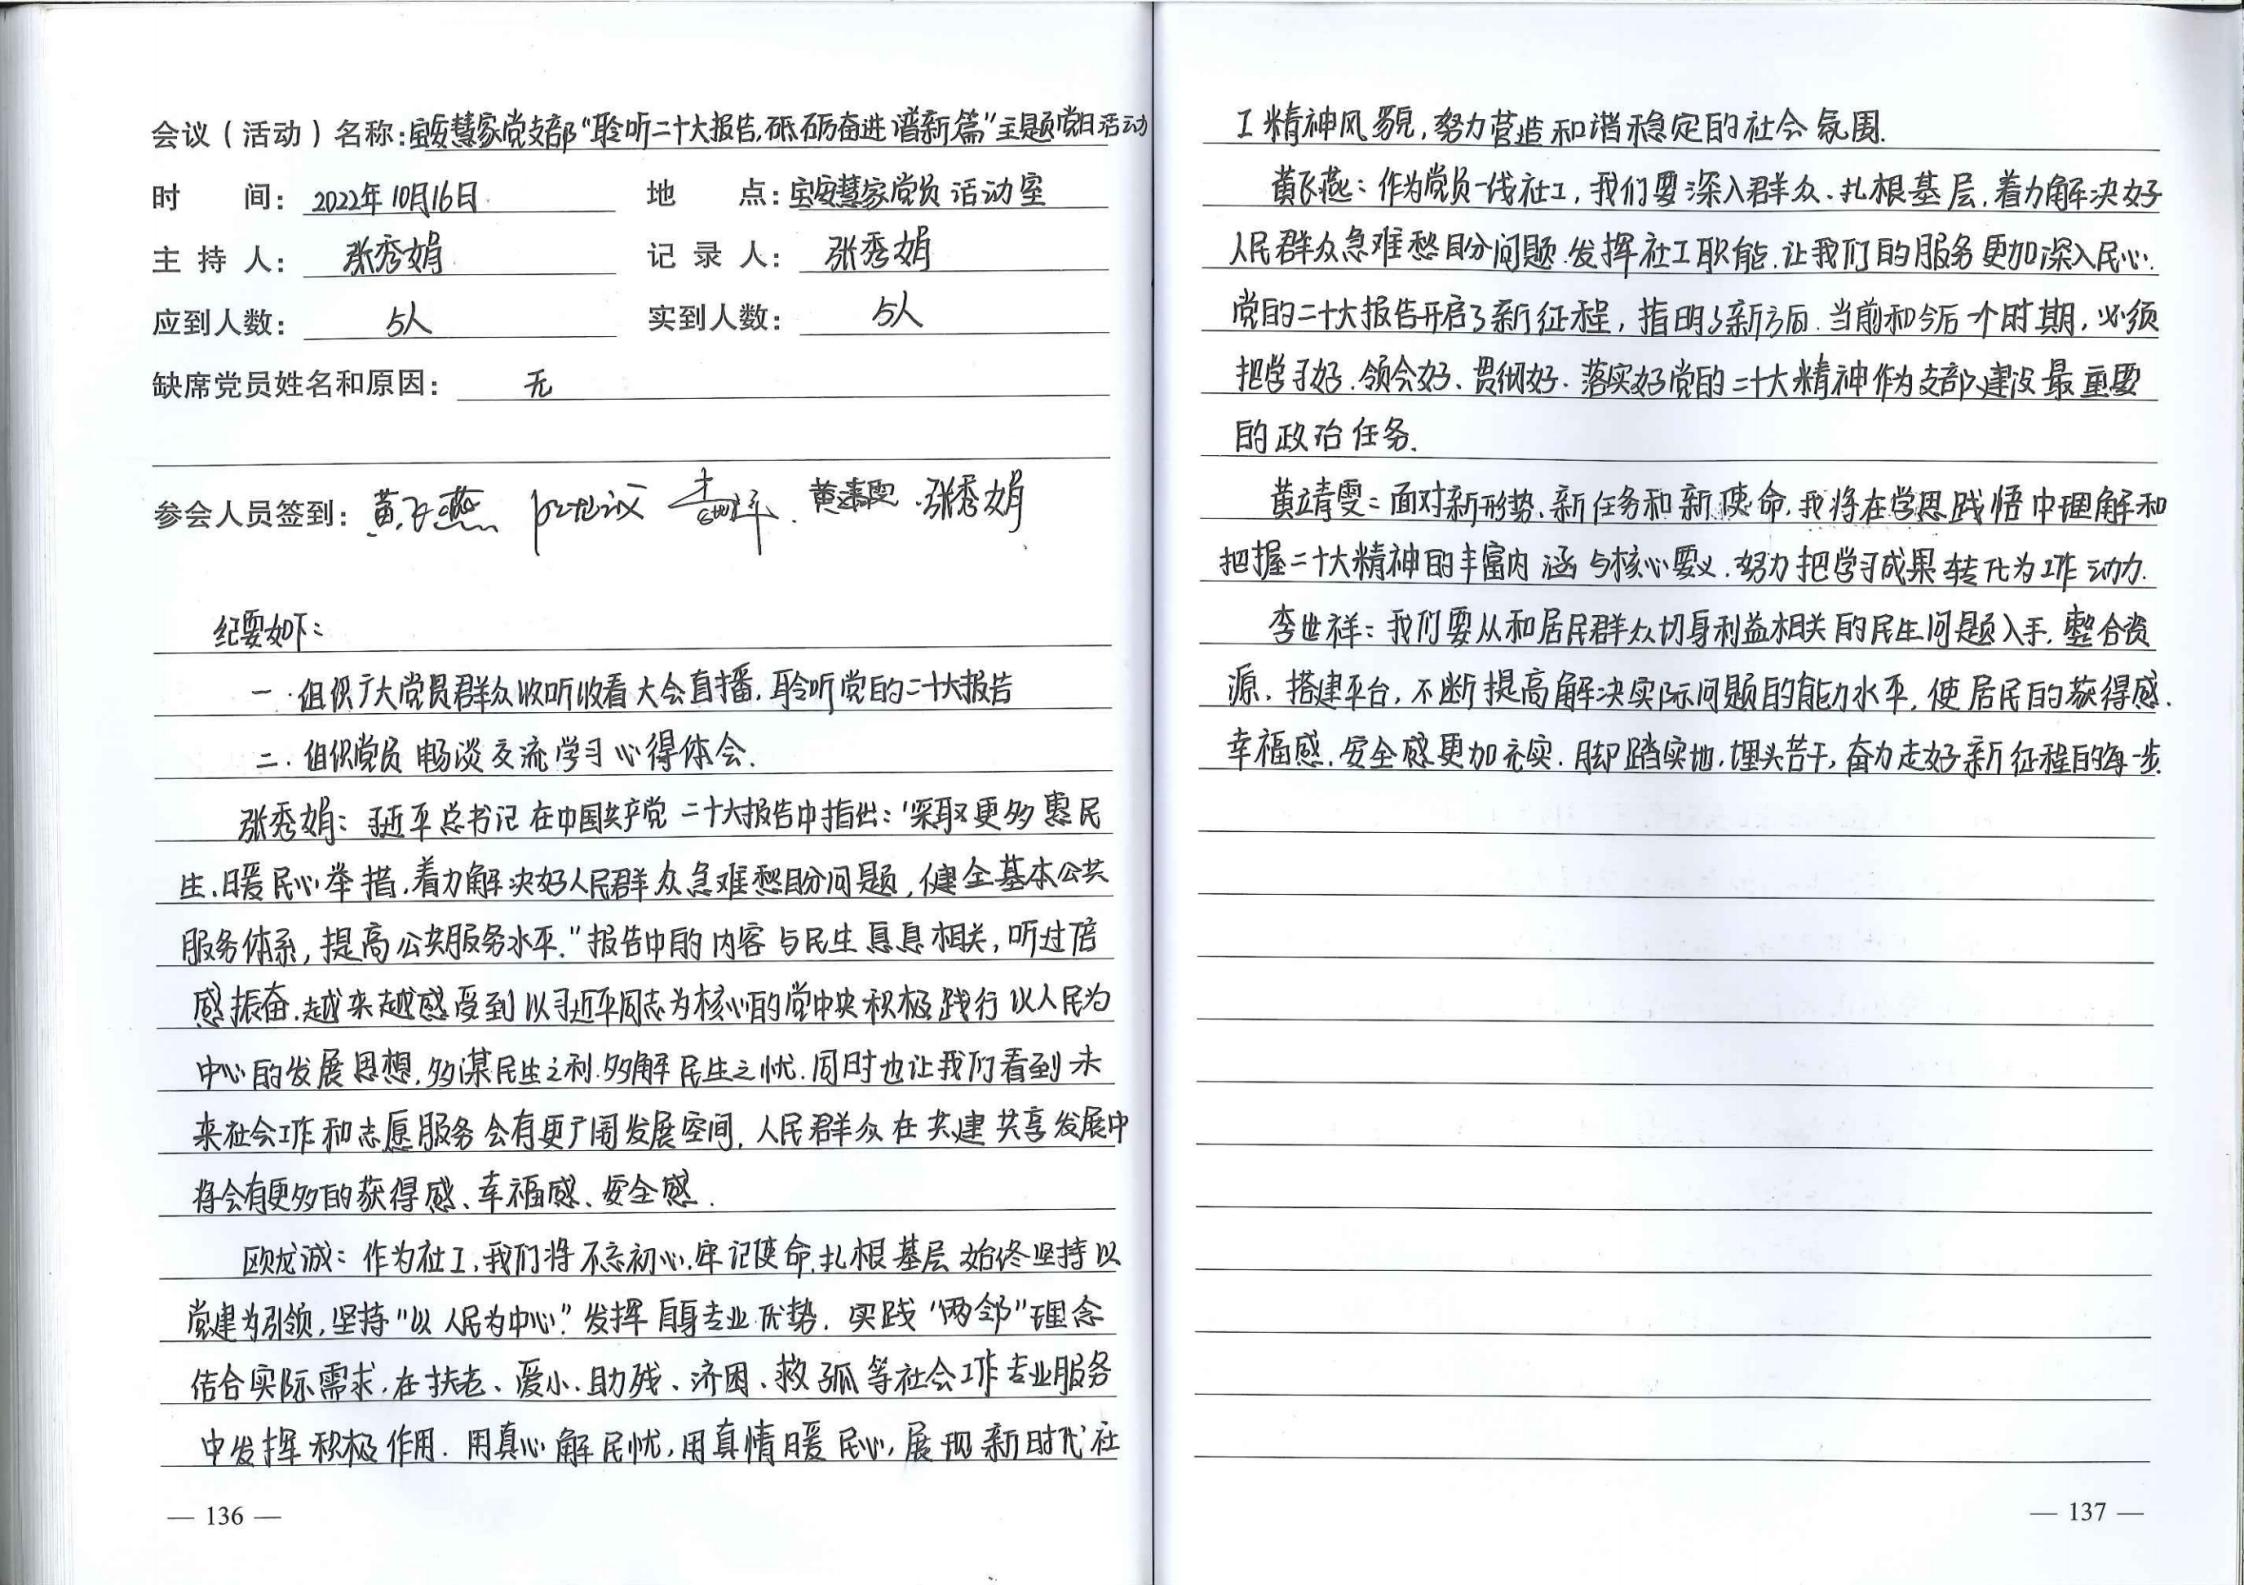 会议（活动）名称：宝安慧家党支部“聆听二十大报告，砥砺奋进谱新篇”主题党日活动
时 间：2022年10月16日 地 点：宝安慧家党员活动室
主 持 人：张秀娟 记 录 人：张秀娟
应到人数：5人 实到人数：5人
缺席党员姓名和原因：无
参会人员签到：黄飞燕 欧龙诚 李世祥 黄靖雯 张秀娟
纪要如下：
一．组织广大党员群众收听收看大会直播，聆听党的二十大报告
二．组织党员畅谈交流学习心得体会．
张秀娟：习近平总书记在中国共产党二十大报告中指出：“采取更多惠民
生、暖民心举措，着力解决好人民群众急难愁盼问题，健全基本公共
服务体系，提高公共服务水平．”报告中的内容与民生息息相关，听过倍
感振奋．越来越感受到以习近平同志为核心的党中央积极践行以人民为
中心的发展思想，多谋民生之利．多解民生之忧．同时也让我们看到未
来社会工作和志愿服务会有更广阔发展空间，人民群众在共建共享发展中
将会有更多的获得感、幸福感、安全感．
欧龙诚：作为社工，我们将不忘初心，牢记使命，扎根基层 始终坚持以
党建为引领，坚持“以人民为中心．”发挥自身专业优势．实践“两邻”理念
结合实际需求，在扶老、爱小、助残、济困、救孤等社会工作专业服务
中发挥积极作用．用真心解民忧，用真情暖民心，展现新时代社
— 136 —
工精神风貌，努力营造和谐稳定的社会氛围．
黄飞燕：作为党员一线社工，我们要深入群众、扎根基层，着力解决好
人民群众急难愁盼问题．发挥社工职能．让我们的服务更加深入民心．
党的二十大报告开启了新征程，指明了新方向．当前和今后一个时期，必须
把学习好、领会好、贯彻好、落实好党的二十大精神作为支部建设最重要
的政治任务．
黄靖雯：面对新形势、新任务和新使命，我将在学思践悟中理解和
把握二十大精神的丰富内涵与核心要义．努力把学习成果转化为工作动力．
李世祥：我们要从和居民群众切身利益相关的民生问题入手，整合资
源、搭建平台，不断提高解决实际问题的能力水平，使居民的获得感、
幸福感、安全感更加充实．脚踏实地，埋头苦干，奋力走好新征程的每一步．
— 137 —